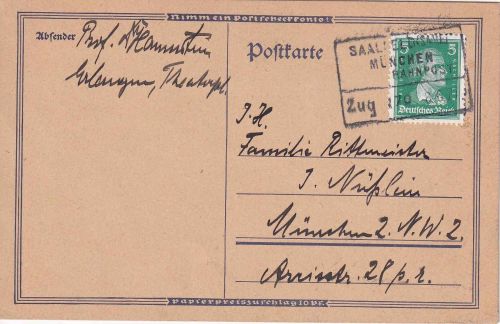 Nimm ein Postscheckkonto!
Absender
Prof. Dr
Erlangen, Theaterpl.
Postkarte
MÜNCHEN
BAHNPOST
Zug
5
Deutsches Reich
J. H.
Familie Rittmeister
J. Nüßlein
München 2. N.W. 2.
Arcisstr. 28 p. r.
Papierpreiszuschlag 10 Pf.